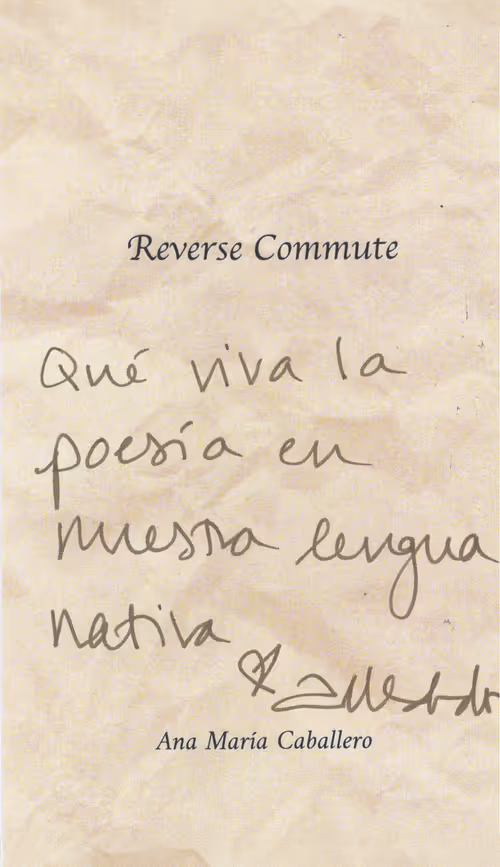 Reverse Commute
Qué viva la
poesía en
nuestra lengua
nativa
Ana María Caballero